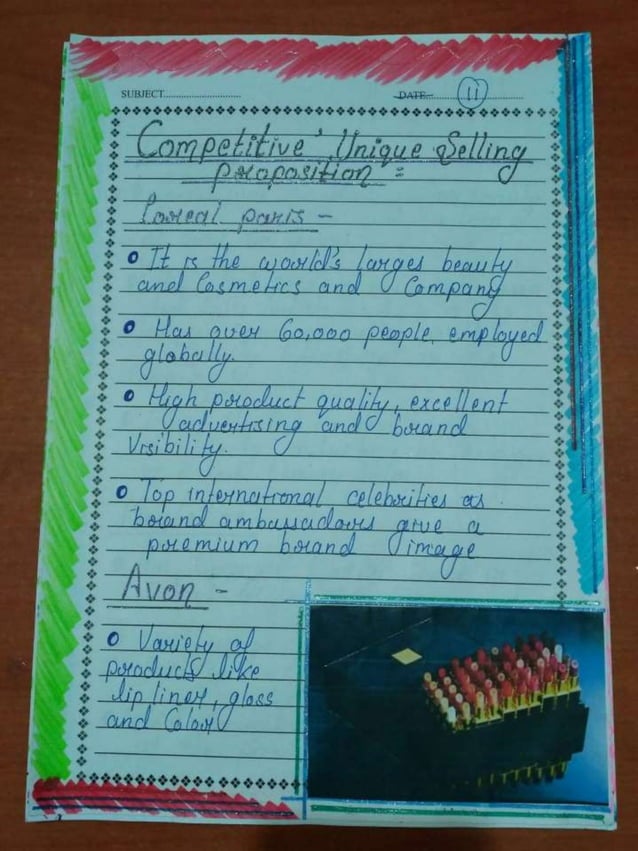 SUBJECT............................
DATE............................ 11
Competitive' Unique Selling
proposition :
Loreal paris -
It is the world's larges beauty
and Cosmetics and Company
Has over 60,000 people, employed
globally.
High product quality, excellent
advertising and brand
Visibility.
Top international celebrities as
brand ambassadors give a
premium brand image
Avon -
Variety of
products like
lip liner, gloss
and Color